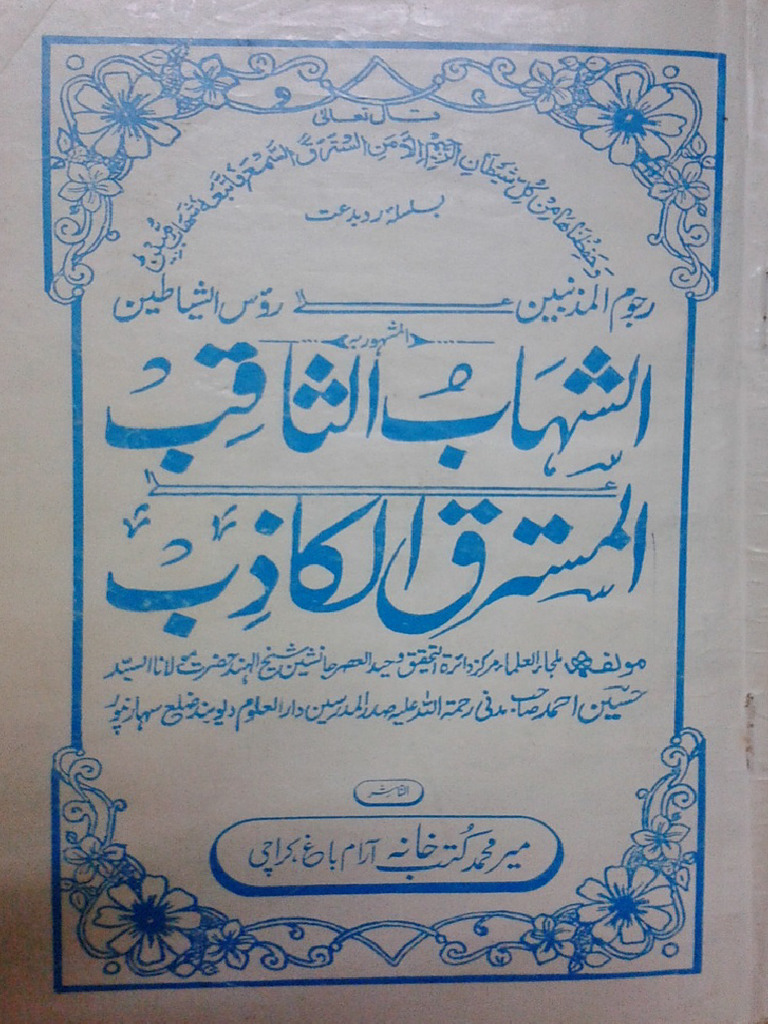 قال تعالیٰ
وَحَفِظْنَاهَا مِنْ كُلِّ شَيْطَانٍ الرَّجِيْمِ اِلَّا مَنِ اسْتَرَقَ السَّمْعَ فَاَتْبَعَهُ شِهَابٌ مُّبِيْنٌ
بسلسلہ رد بدعت
رجوم المذنبین علیٰ رؤس الشیاطین
المشہور بہ
الشہابُ الثاقِب
علیٰ
المسترق الکاذِب
مولفہ ملجاء العلماء مرکز دائرۃ التحقیق وحید العصر جانشین شیخ الہند حضرت مولانا السیّد
حسین احمد صاحب مدنی رحمۃ اللہ علیہ صدر المدرسین دارالعلوم دیوبند ضلع سہارنپور
الناشر
میر محمد کتب خانہ آرام باغ، کراچی